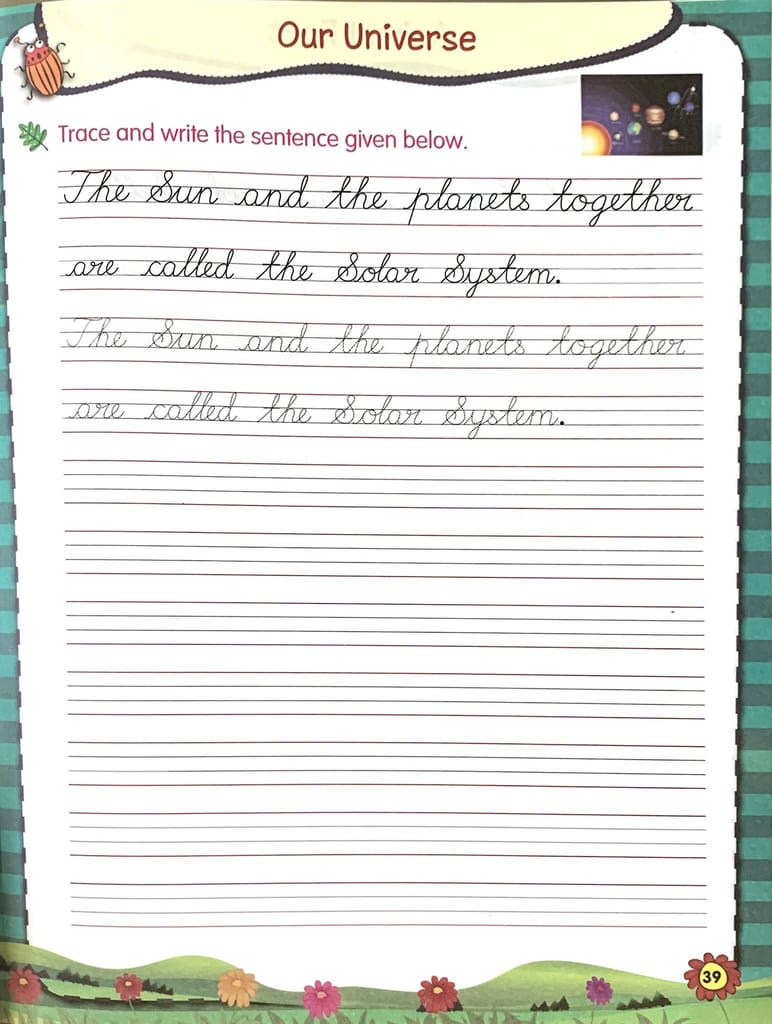 Our Universe
Trace and write the sentence given below.
The Sun and the planets together
are called the Solar System.
The Sun and the planets together
are called the Solar System.
39